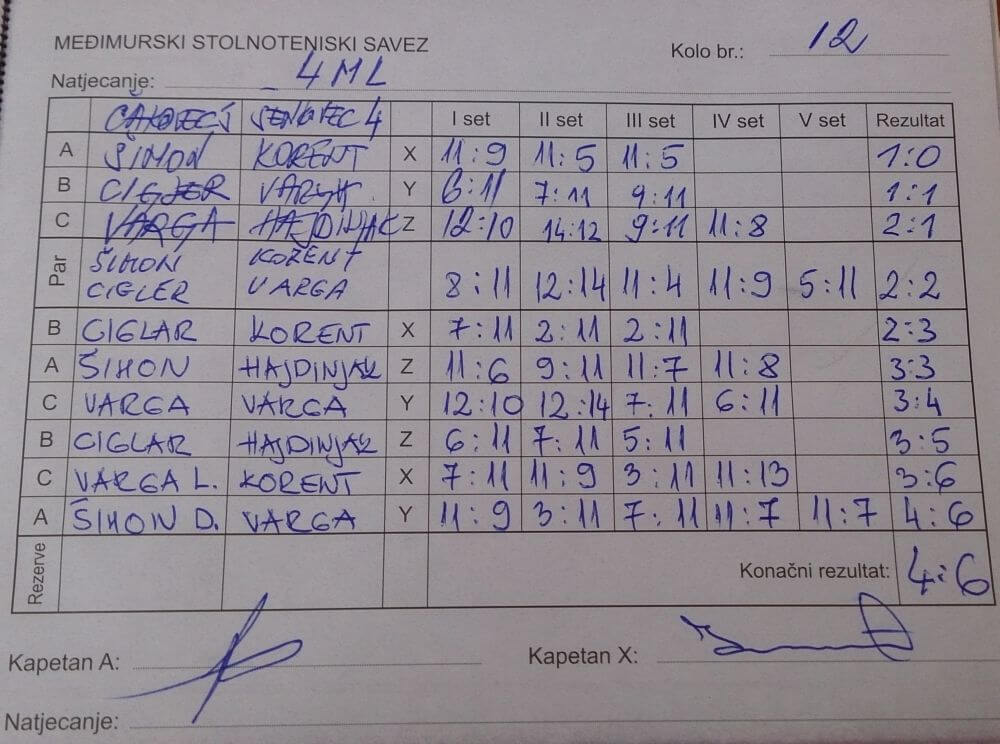 MEĐIMURSKI STOLNOTENISKI SAVEZ
Kolo br.: 12
Natjecanje: 4 ML
ČAKOVEC 5 SENKOVEC 4 I set II set III set IV set V set Rezultat
A ŠIMON KORENT X 11:9 11:5 11:5 1:0
B CIGLER VARGA Y 6:11 7:11 9:11 1:1
C VARGA HAJDINJAK Z 12:10 14:12 9:11 11:8 2:1
Par ŠIMON KORENT
CIGLER VARGA 8:11 12:14 11:4 11:9 5:11 2:2
B CIGLAR KORENT X 7:11 2:11 2:11 2:3
A ŠIMON HAJDINJAK Z 11:6 9:11 11:7 11:8 3:3
C VARGA VARGA Y 12:10 12:14 7:11 6:11 3:4
B CIGLAR HAJDINJAK Z 6:11 7:11 5:11 3:5
C VARGA L. KORENT X 7:11 11:9 3:11 11:13 3:6
A ŠIMON D. VARGA Y 11:9 3:11 7:11 11:7 11:7 4:6
Rezerve Konačni rezultat: 4:6
Kapetan A: Kapetan X:
Natjecanje: